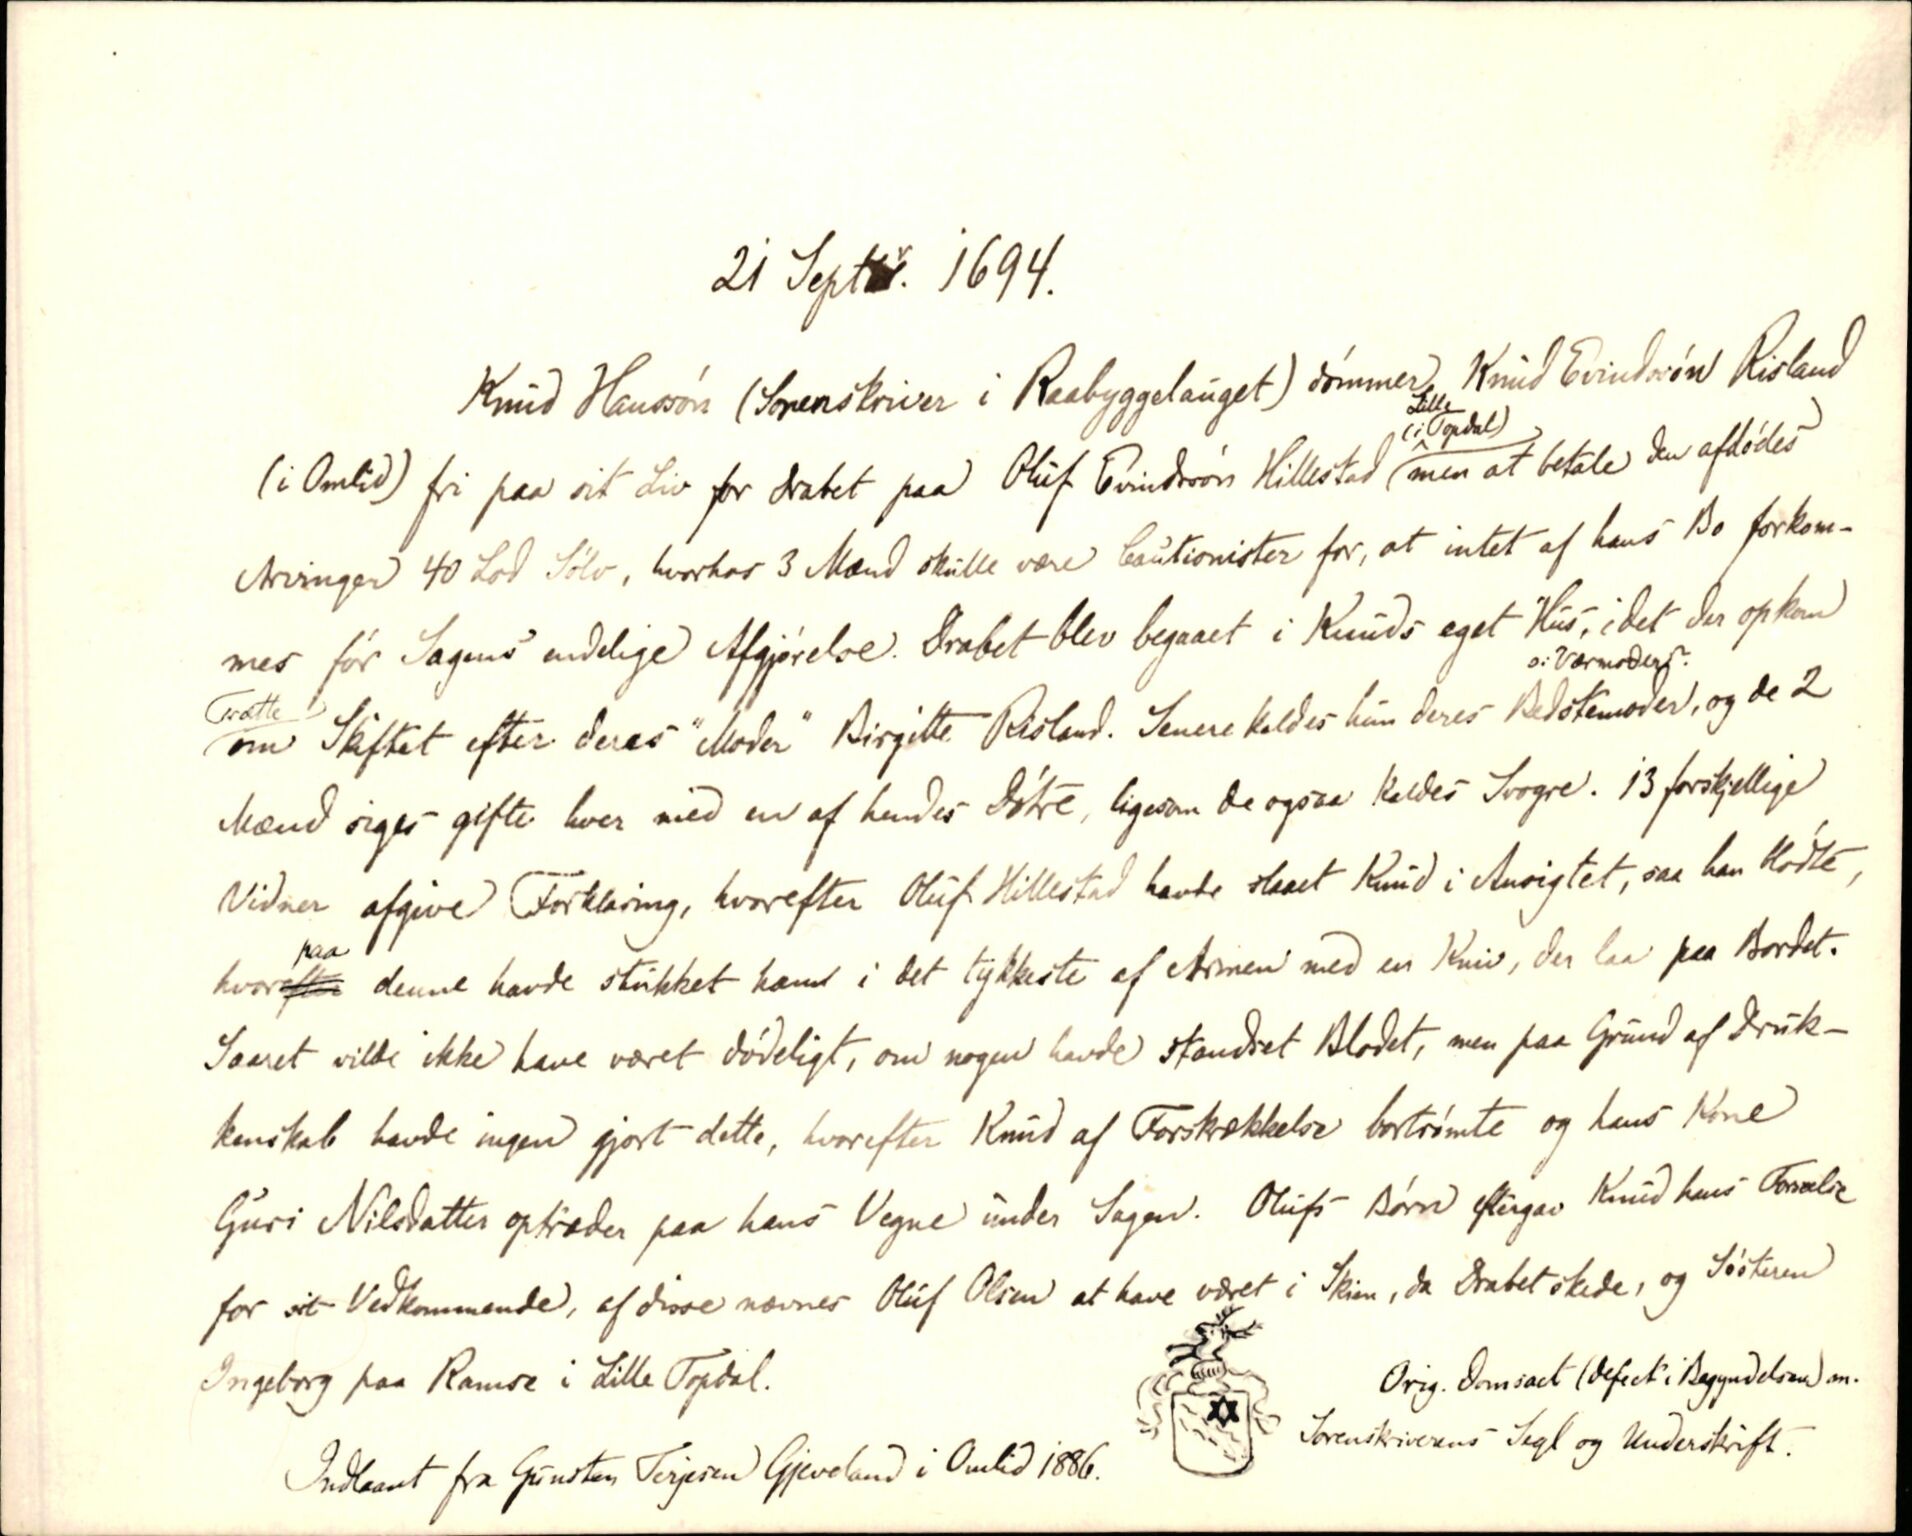 21 Septr. 1694.
Knud Hanssön (Sorenskriver i Raabyggelauget) dömmer Knud Evindssön Risland
(i Omlid) fri paa sit Liv for Drabet paa Oluf Evindssön Hillestad (i Lille Topdal) men at betale den afdödes
Arvinger 40 Lod Sölv, hvorhos 3 Mænd skulle være Cautionister for, at intet af hans Bo forkom-
mes för Sagens endelige Afgjörelse. Drabet blev begaaet i Knuds eget Hus, idet der opkom
Trætte om Skiftet efter deres "Moder" Birgitte Risland. Senere kaldes hun deres Bedstemoder, ɔ: Værmoder og de 2
Mænd siges gifte hver med en af hendes Dötre, ligesom de ogsaa kaldes Svogre. 13 forskjellige
Vidner afgive Forklaring, hvorefter Oluf Hillestad havde slaaet Knud i Ansigtet, saa han blödte,
hvorpaa denne havde stukket ham i det tykkeste af Armen med en Kniv, der laa paa Bordet.
Saaret vilde ikke have været dödeligt, om nogen havde standset Blodet, men paa Grund af Druk-
kenskab havde ingen gjort dette, hvorefter Knud af Forskrækkelse bortrömte og hans Kone
Guri Nilsdatter optræder paa hans Vegne under Sagen. Olufs Börn eftergav Knud hans Forseelse
for sit Vedkommende, af disse nævnes Oluf Olsen at have været i Skien, da Drabet skede, og Sösteren
Ingeborg paa Ramse i Lille Topdal.
Orig. Domsact (defect i Begyndelsen) m.
Sorenskriverens Segl og Underskrift.
Indlaant fra Gunsten Terjesen Gjeveland i Omlid 1886.